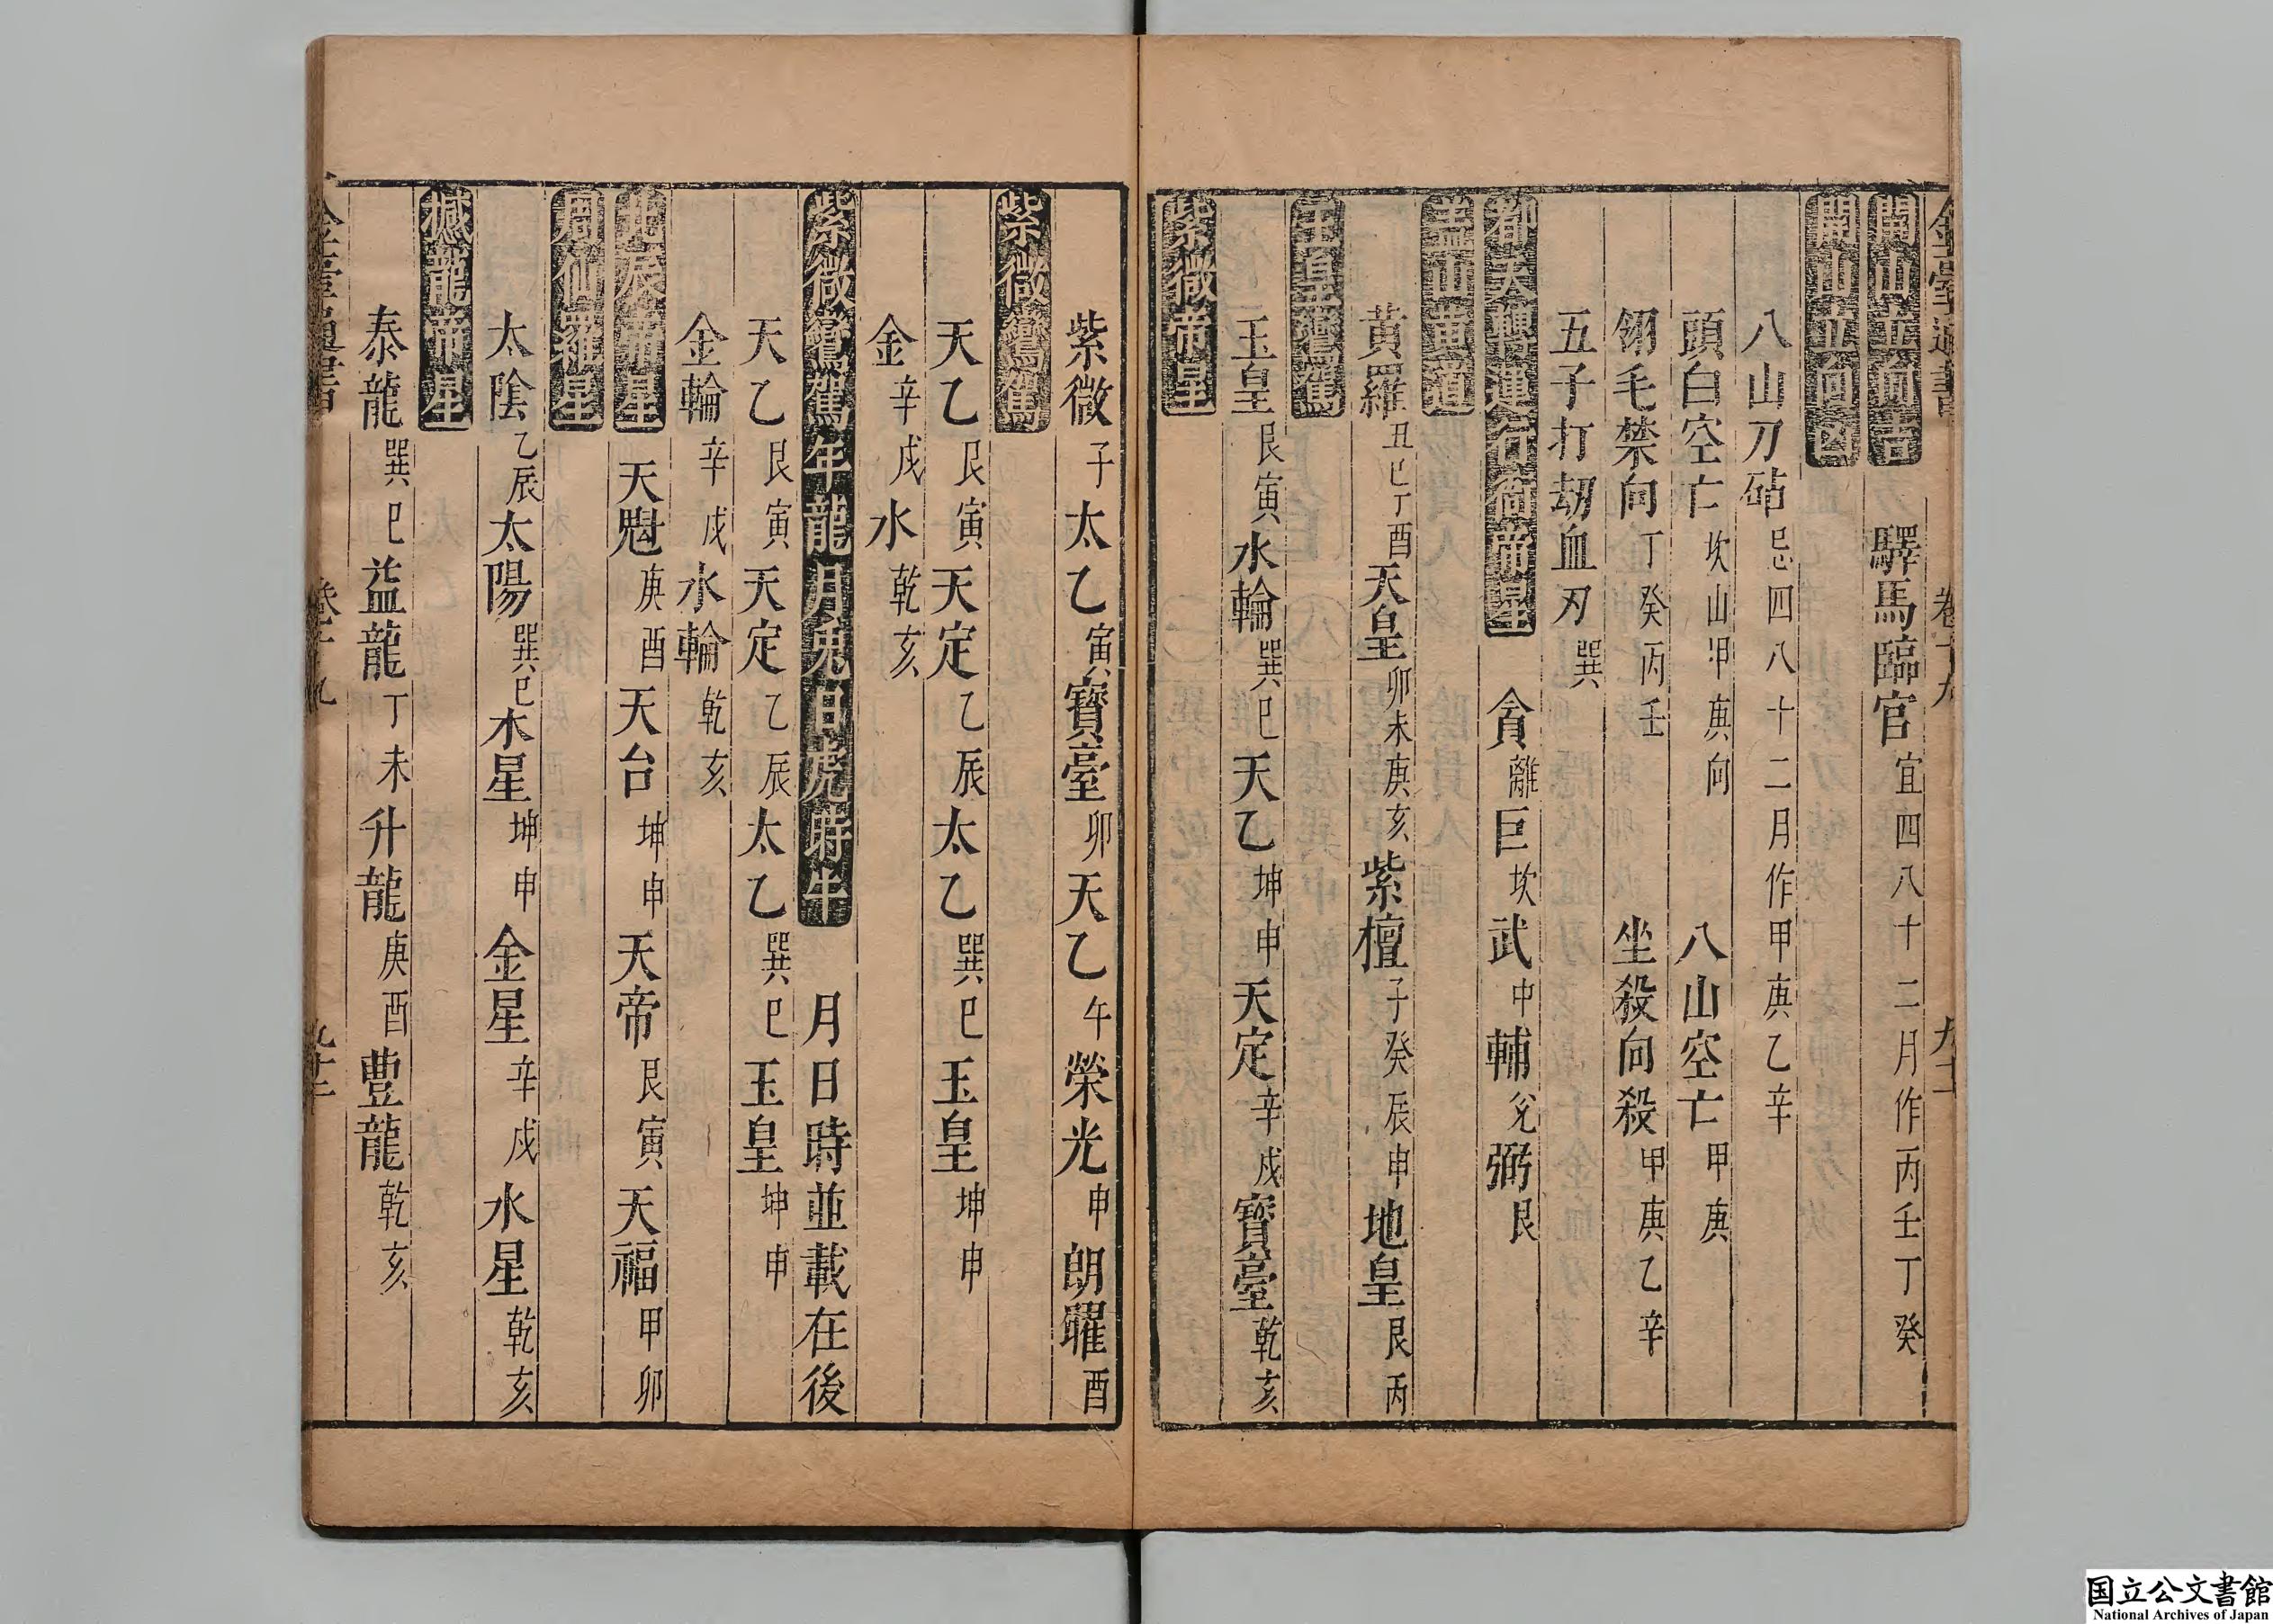 金臺通書 卷十九 九十一
開山立向吉 驛馬臨官 宜四八十二月作丙壬丁癸
開山立向凶
八山刀砧 忌四八十二月作甲庚乙辛
頭白空亡 坎山甲庚向 八山空亡 甲庚
翎毛禁向 丁癸丙壬 坐殺向殺 甲庚乙辛
五子打劫血刃 巽
都天轉運行衙帝星 貪離巨坎武中輔兌弼艮
蓋山黃道
黃羅丑巳丁酉天皇卯未庚亥紫檀子癸辰申地皇艮丙
玉皇鑾駕
玉皇艮寅水輪巽巳天乙坤申天定辛戌寶臺乾亥
紫微帝星
紫微子太乙寅寶臺卯天乙午榮光申朗曜酉
紫微鸞駕
天乙艮寅天定乙辰太乙巽巳玉皇坤申
金辛戌水乾亥
紫微鸞駕年龍月兔日虎時牛 月日時並載在後
天乙艮寅天定乙辰太乙巽巳玉皇坤申
金輪辛戌水輪乾亥
北辰帝星 天魁庚酉天台坤申天帝艮寅天福甲卯
周仙羅星
太陰乙辰太陽巽巳木星坤申金星辛戌水星乾亥
撼龍帝星
泰龍巽巳益龍丁未升龍庚酉豊龍乾亥
卷十九
国立公文書館
National Archives of Japan